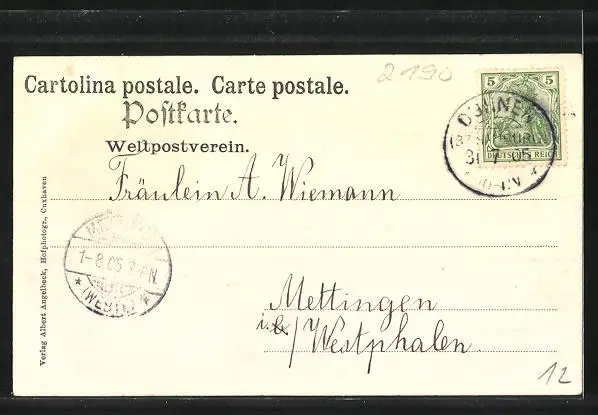 2190
Cartolina postale. Carte postale.
Postkarte.
Weltpostverein.
5 5
DEUTSCHES REICH
31 7 05
Fräulein A. Wiemann
1-8.05
(WESTF.)
Mettingen
i. Westphalen.
Verlag Albert Angelbeck, Hofphotogr., Cuxhaven
12